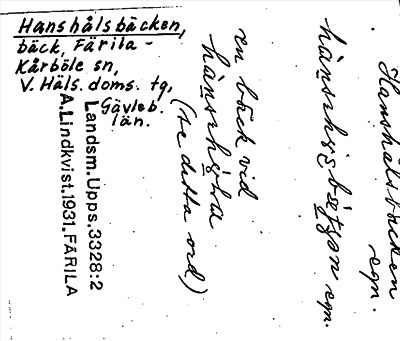 Hanshålsbäcken,
bäck, Färila -
Kårböle sn,
V. Häls. doms. tg,
Gävleb.
län.
Landsm. Upps. 3328:2
A. Lindkvist. 1931. FÄRILA
Hanshålsbäcken
egn.
egn.
en bäck vid
(se detta ord)